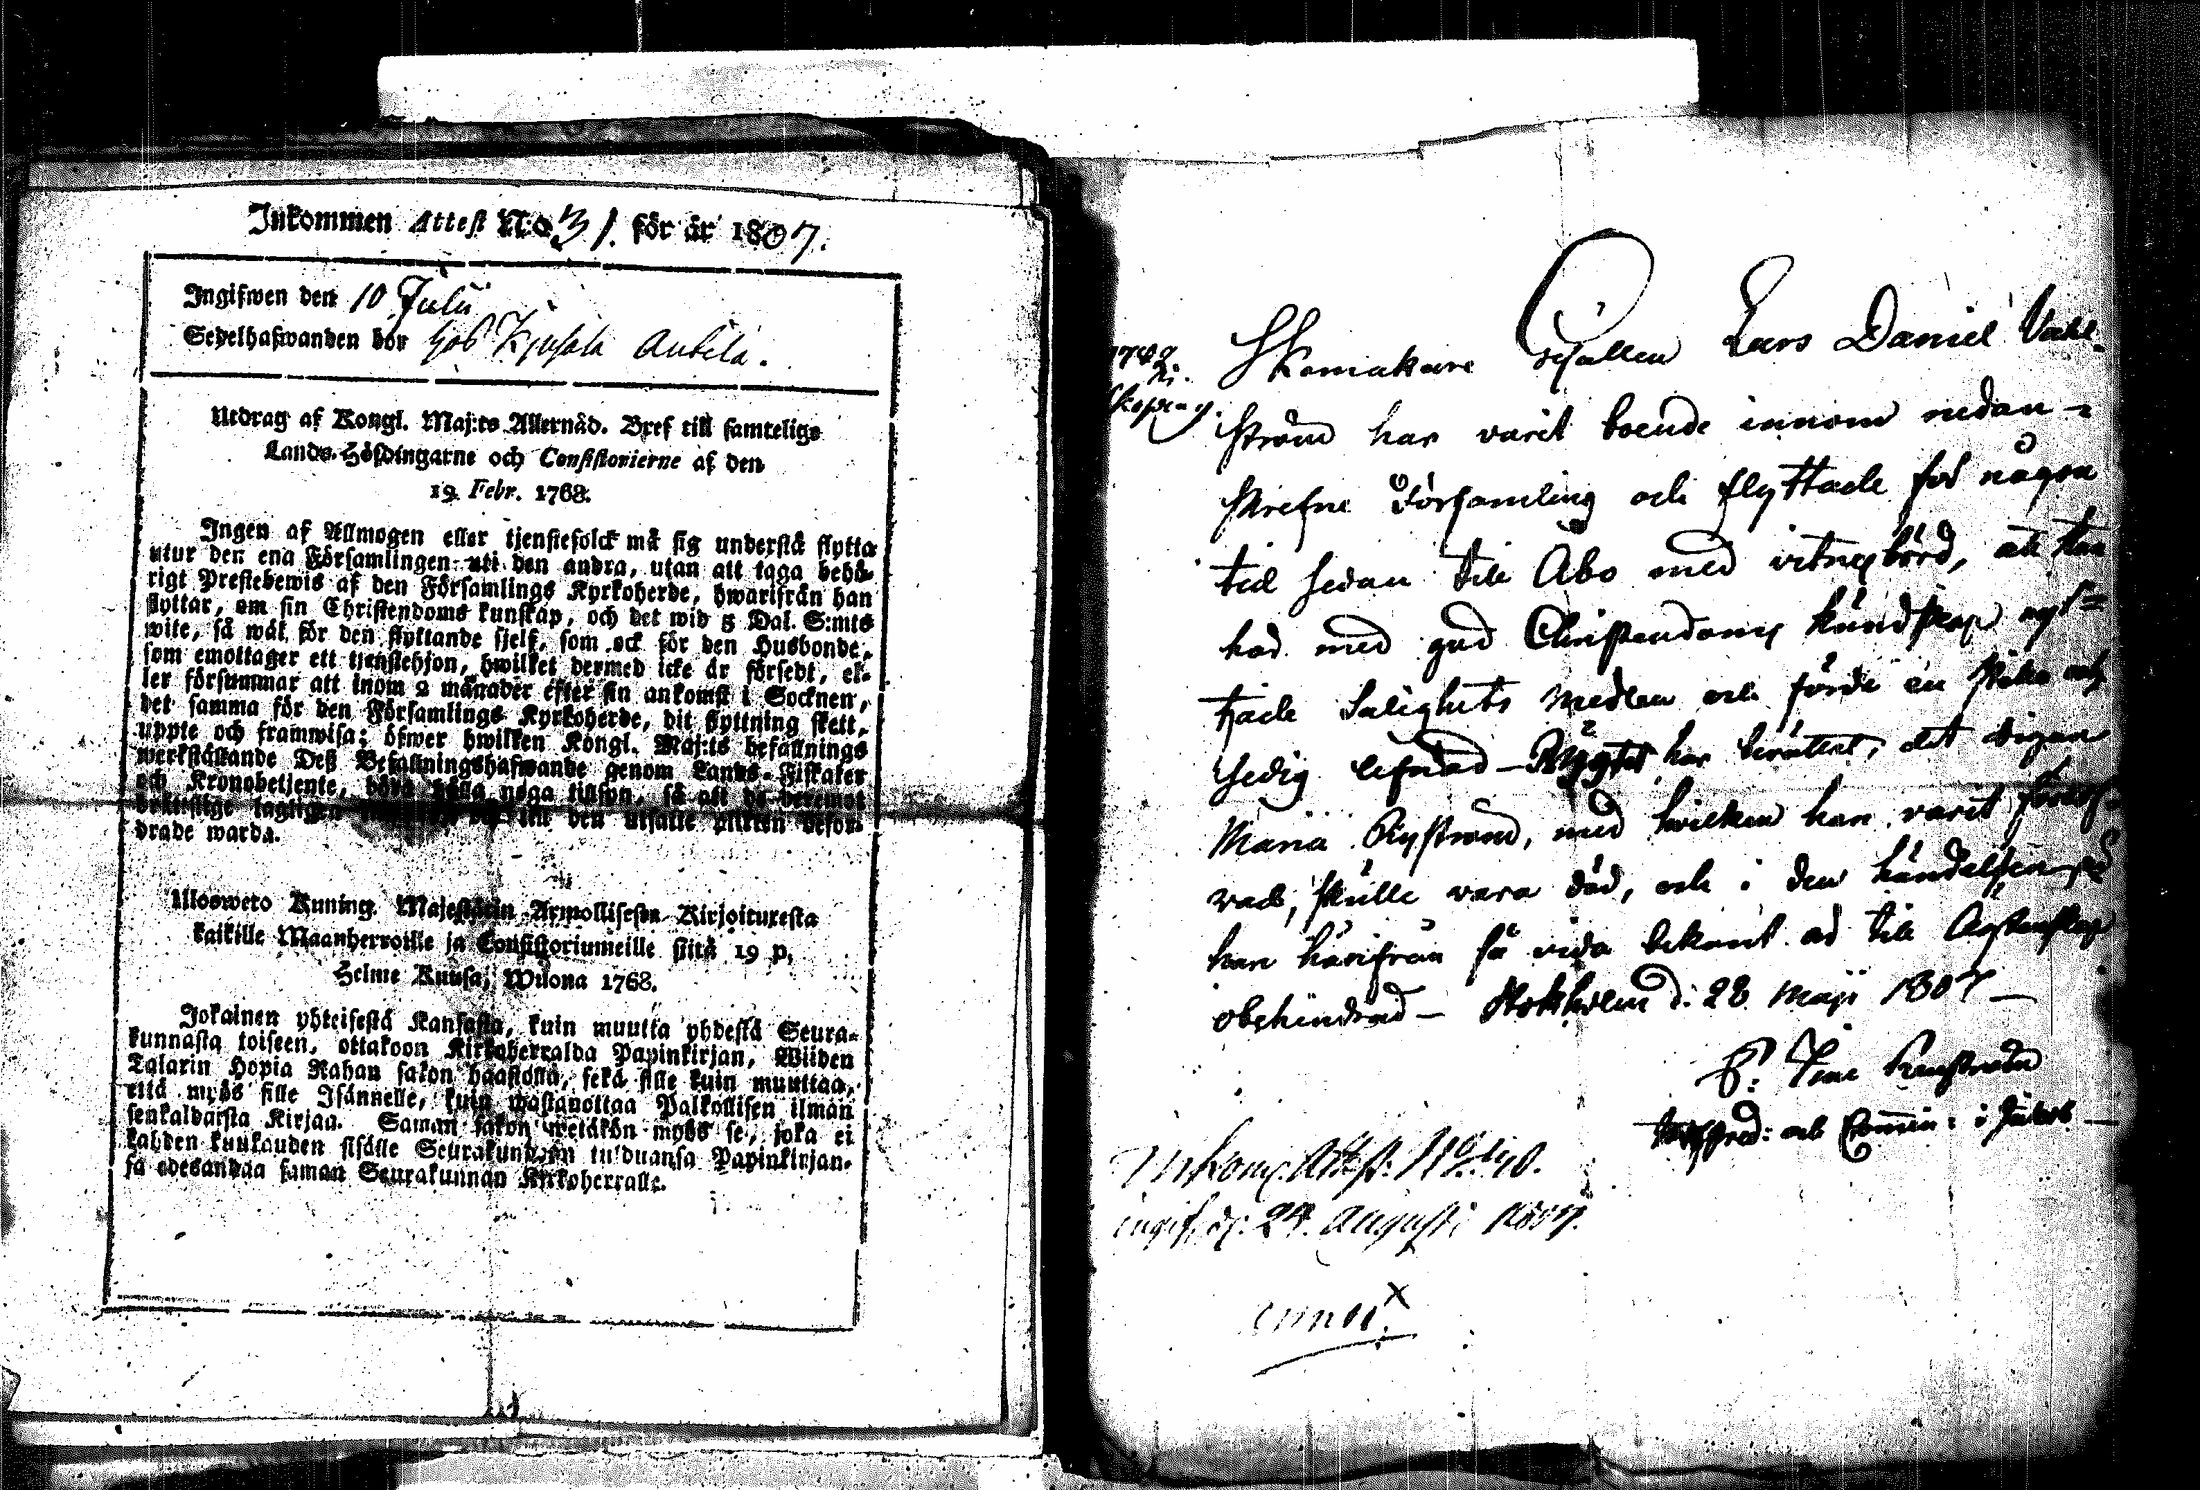 Inkommen Attest No 31. för år 1807.
Ingifwen den 10 Julii
Sedelhafwanden bor hos Antila.
Utdrag af Kongl. Maj:ts Allernåd. Bref till samtelige
Lands-Höfdingarne och Consistorierne af den
19. Febr. 1768.
Ingen af Allmogen eller tjenstefolck må sig understå flytta
utur den ena Församlingen uti den andra, utan att taga behö-
rigt Prestebewis af den Församlings Kyrkoherde, hwarifrån han
flyttar, om sin Christendoms kunskap, och det wid 5 Dal. S:mts
wite, så wäl för den flyttande sjelf, som ock för den Husbonde,
som emottager ett tjenstehjon, hwilket dermed icke är försedt, el-
ler försummar att inom 2 månader efter sin ankomst i Socknen,
det samma för den Församlings Kyrkoherde, dit flyttning skett,
uppte och framwisa; öfwer hwilken Kongl. Maj:ts befallnings
werkställande Deß Befallningshafwande genom Lands-Fiskaler
och Kronobetjente, böra hålla noga tillsyn, så att de deremot
bråttslige lagligen till den utsatte plikten befor-
drade warda.
Ulosweto Kuning. Majestätin Armollisesta Kirjoituxesta
kaikille Maanherroille ja Consistoriumeille siitä 19 p.
Helme Kuusa, Wuona 1768.
Jokainen yhteisestä Kansasta, kuin muutta yhdestä Seura-
kunnasta toiseen, ottakoon Kirkoherralda Papinkirjan, Wiiden
Talarin Hopia Rahan sakon haastolla, sekä sille kuin muuttaa,
että myös sille Isännelle, kuin wastanottaa Palkollisen ilman
senkaldaista Kirjaa. Saman sakon wetäkön myös se, joka ei
kahden kuukauden sisälle Seurakundaan tulduansa Papinkirjan-
sa edesandaa saman Seurakunnan Kirkoherralle.
Skomakare Gesällen Lars Daniel Vahl-
ström har varit boende innom nedan-
skrefne Församling och flyttade för någon
tid sedan till Åbo med vitnesbörd, att han
had med god Christendoms kundskap nyt-
tjade Salighets Medlen och förde en stilla och
sedig lefnad – Ryktet har berättat, det Pigan
Maria Nyström, med hvilken han varit förlof-
vad, skulle vara död, och i den händelsen är
han härifrån så vida bekant ad till Ägtenskap
obehindrad – Stokholm d: 28 Maji 1807 –
och Comin: i Jakob –
Inkom. Attest. No 40.
ingif. d. 24. Augusti 1807.